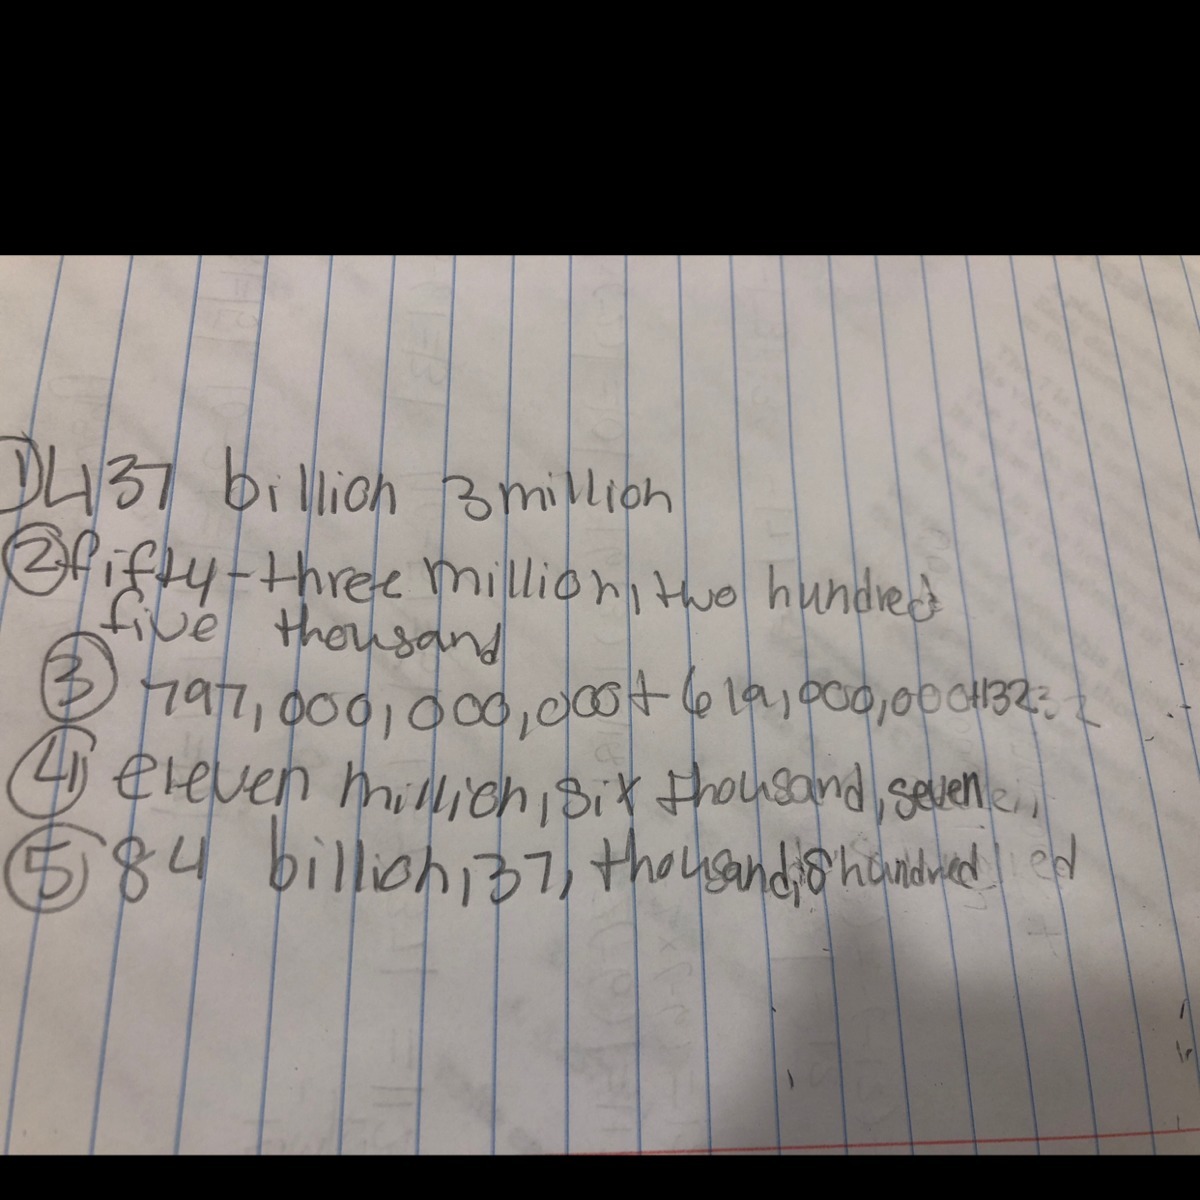 1) 437 billion 3 million
2 fifty-three million, two hundred
five thousand
3 797,000,000,000+619,000,000+132
4 eleven million, six thousand, seven
5 84 billion, 37, thousand, 8 hundred ed